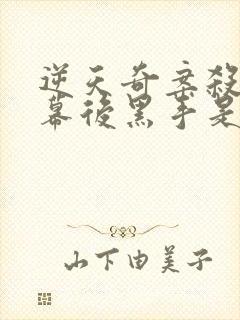 逆天奇案殺
幕後黑手是
山下由美子